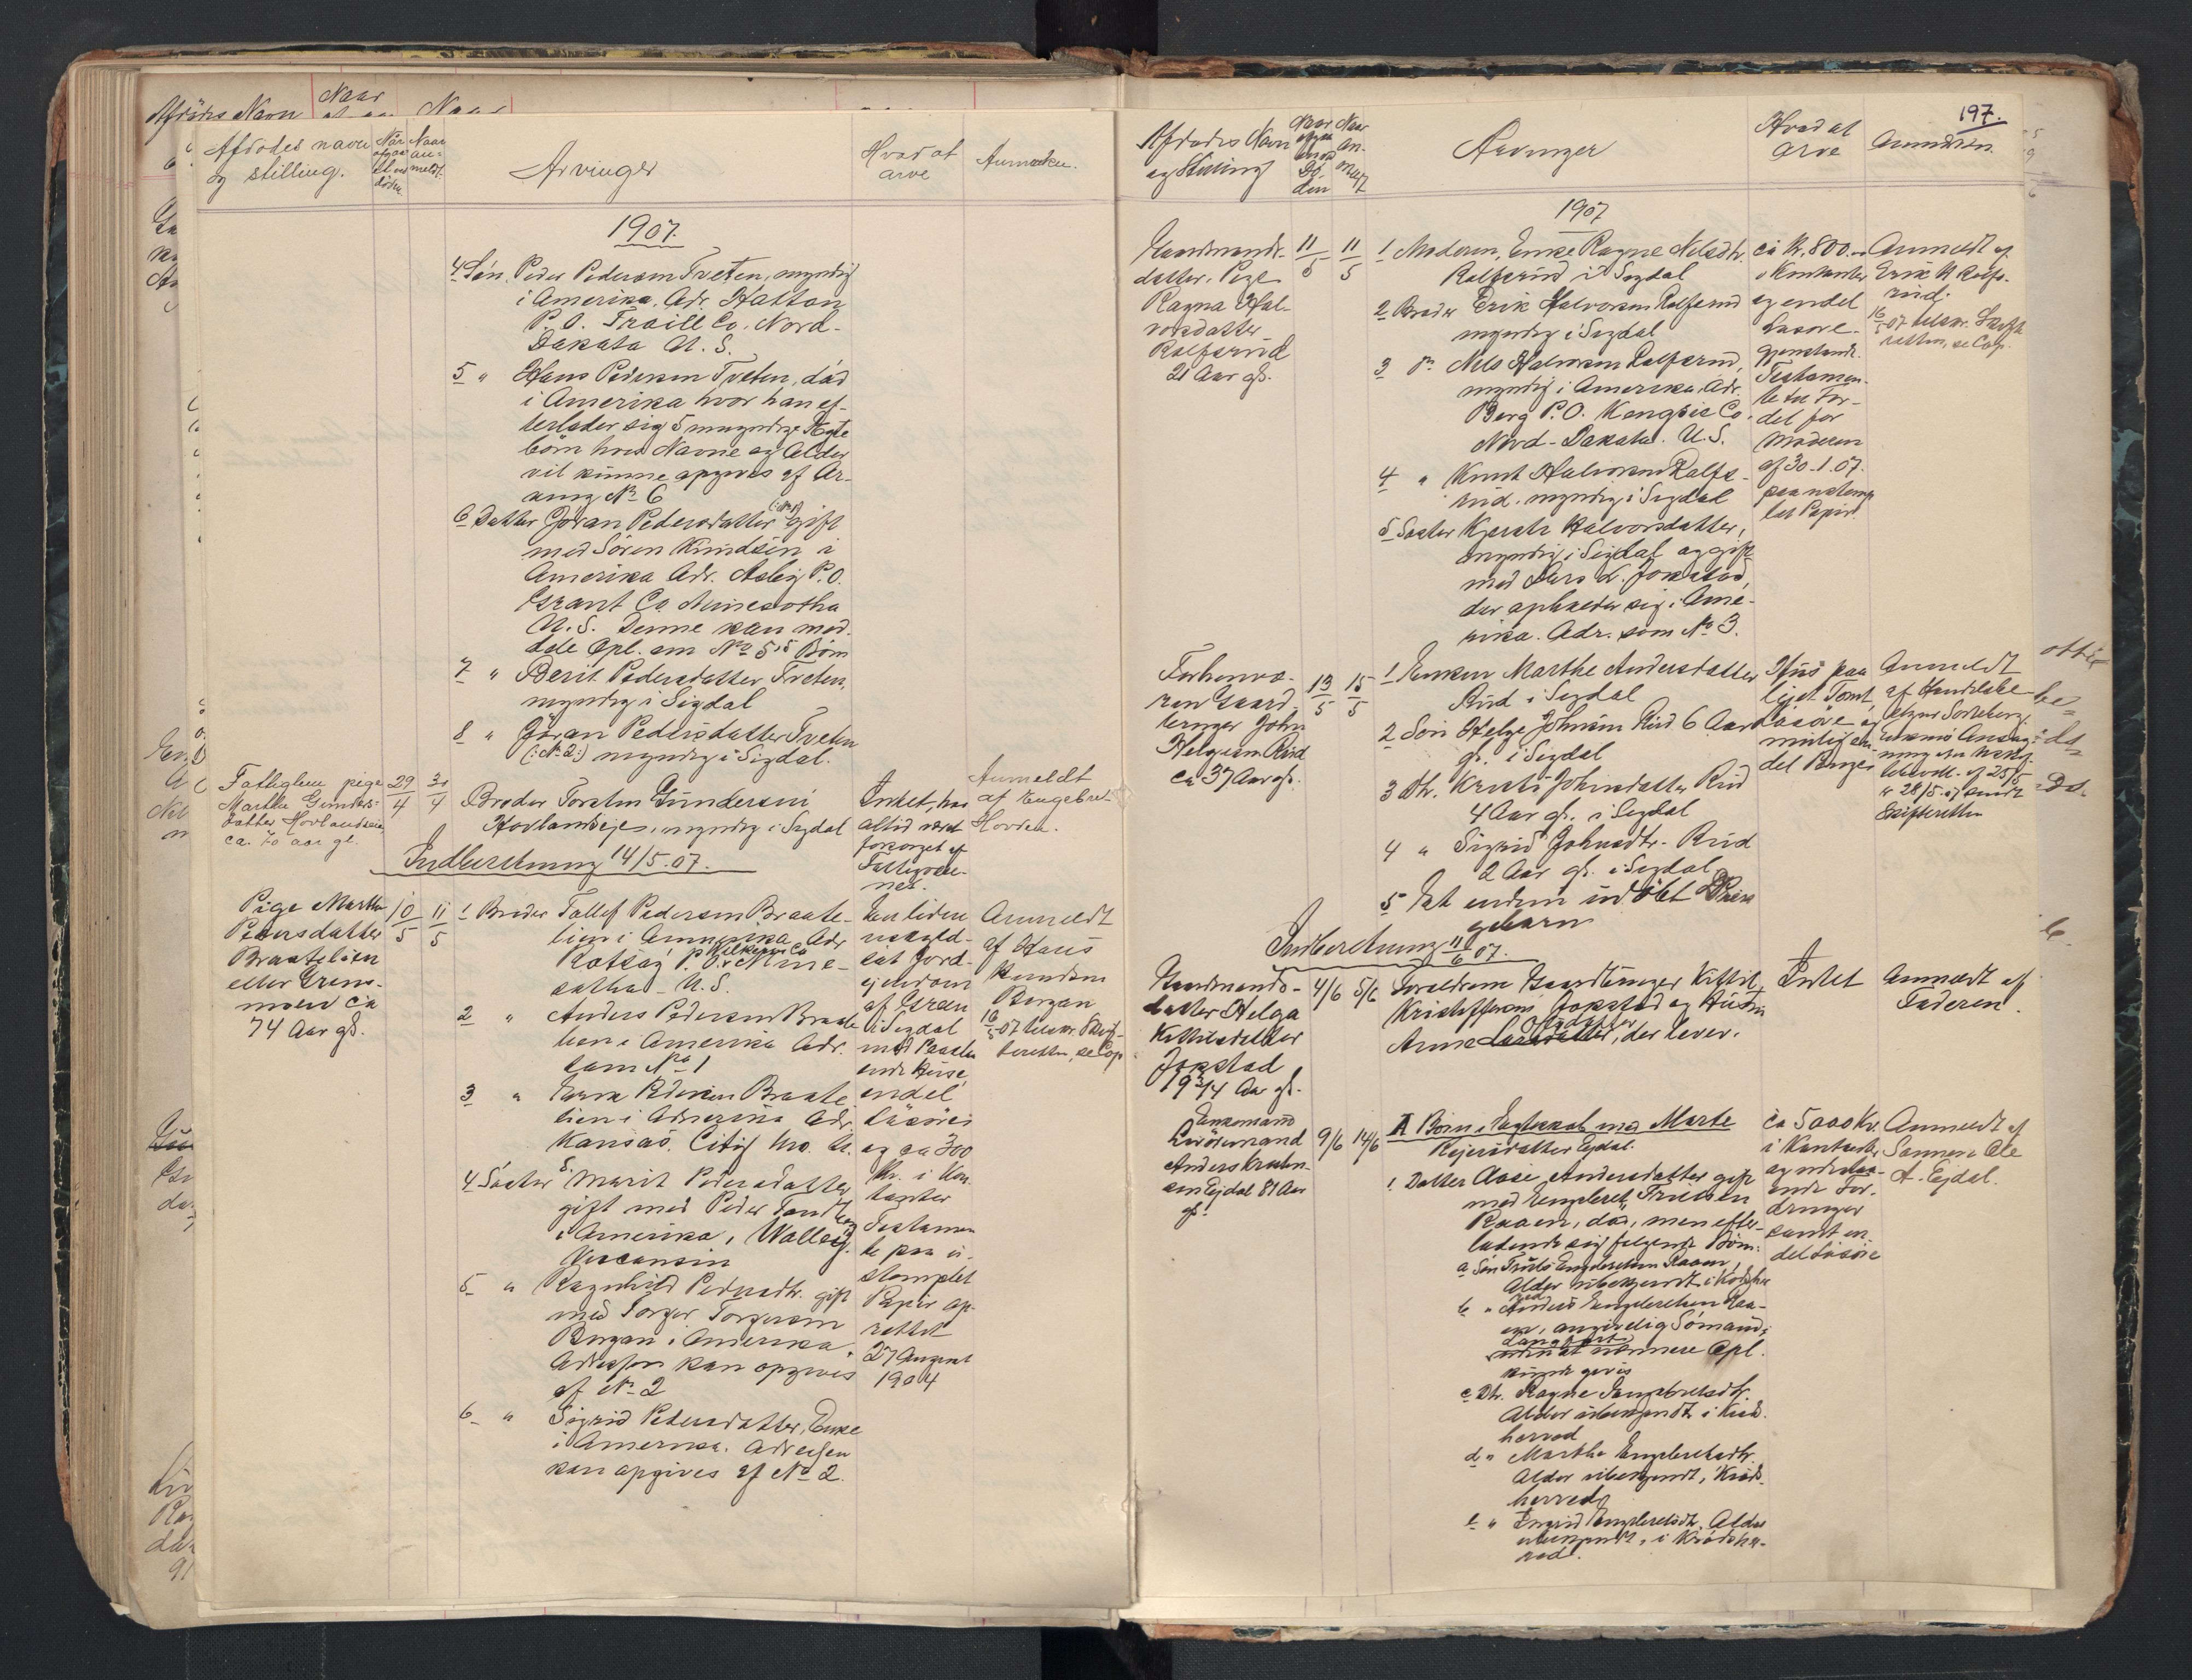 Afdödes navn
og stilling.
Naar
an-
meldt.
Arvinger
Hvad at
arve
Anmærkn.
1907.
4 Søn. Peder Pedersen Tveten, myndig
i Amerika. Adr. Hatton
P.O. Traill Co. Nord-
Dakata U.S.
5 " Hans Pedersen Tveten, död
i Amerika hvor han ef-
terlader sig 5 umyndige Ægte
börn hvis Navne og Alder
vil kunne opgives af Ar-
ving No 6
6 Datter Jöran Pedersdatter gift
med Sören Knudsen i
Amerika Adr. Asbey P.O.
Grant Co. Minesotha
U.S. Denne kan med-
dele Opl. om No 5's Börn
7 " Berit Pedersdatter Tveten,
myndig i Sigdal
8 " Göran Pedersdatter Tveten
(: No 2:) myndig i Sigdal.
Fattiglem pige
Marthe Gunders-
datter Hovlandseie
ca. 70 aar gl.
29/4
30/4
Broder Torsten Gundersen
Hovlandseje, myndig i Sigdal
Intet, har
altid været
forsørget af
Fattigvæse-
net.
Anmeldt
af Engebret
Hovde.
Indberetning 14/5.07.
Pige Marthe
Pedersdatter
Braatelien
eller Grens-
moen ca
74 Aar gl.
10/5
11/5
1 Broder Tollef Pedersen Braate-
lien i Amerika Adr
Rotsay P.O. Wilkens Co Mine-
satha U.S.
2 " Anders Pedersen Braate
lien i Amerika Adr.
som No 1
3 " Pedersen Braate
lien i Amerika Adr.
Kansas City Mo. U.
S.
4 Søster Marit Pedersdatter
gift med Peder
i Amerika, Walley.
Viscansin
5 " Ragnhild Pedersdtr. gift
med Torger Torgersen
Bergan i Amerika.
Adressen kan opgives
af No 2
6 " Sigrid Pedersdatter, Enke
i Amerika. Adressen
kan opgives af No 2.
En liden
uskyld-
sat Jord-
ejendom
af Gren
i Sigdal
med Paastaa-
ende Huse,
endel
Lösöre
og ca 300
Kr. i Kon-
tanter
Testamen
te paa u-
stemplet
Papir op-
rettet
27 August
1904
Anmeldt
af Hans
Knudsen
Bergan
16/5 07 tilskr. Skif-
teretten, se Cop
197.
Afdödes Navn
og Stilling
Naar
an-
meldt
Arvinger
Hvad at
arve
Anmærkn.
1907
Gaardmands-
datter, Pige
Ragna Hal-
vorsdatter
Rolfsrud
21 Aar gl.
11/5
11/5
1 Moderen, Enke Ragne Nilsdtr.
Rolfsrud i Sigdal
2 Broder Erik Halvorsen Rolfsrud
myndig i Sigdal
3 Do Nils Halvorsen Rolfsrud,
myndig i Amerika. Adr.
Berg P.O. Kengsie Co.
Nord-Dakata. U.S.
4 " Knut Halvorsen Rolfs-
rud. myndig i Sigdal
5 Søster Kjersti Halvorsdatter,
myndig i Sigdal og gift
med Lars L. Jokstad,
der opholder sig i Ame-
rika. Adr. som No 3.
ca Kr. 800.-
i Kontanter
og endel
Lösöre-
gjenstande.
Testamen-
te til For-
del for
Moderen
af 30-1.07.
paa ustemp
let Papir.
Anmeldt af
Erik H. Rolfs-
rud.
16/5 07 tilskr. Skifte
retten, se Cop.
Forhenvæ-
ren Gaard-
bruger John
Helgesen Rud
ca 37 Aar gl.
13/5
15/5
1 Enken Marthe Andersdatter
Rud i Sigdal
2 Søn Helge Johnsen Rud 6 Aar
gl. i Sigdal
3 Dtr. Kristi Johnsdatter Rud
4 Aar gl. i Sigdal
4 " Sigrid Johnsdtr. Rud
2 Aar gl. i Sigdal
5 Et endnu ud öbt Pige
gebarn
Hus paa
lejet Tomt,
Lösöre og
muligens
del Penge
Anmeldt
af Handels be-
styrer Sorteberg.
Enkens Ansøg-
ning om uskif.
tebevill. af 25/5
28/5. af sendt
Skifteretten
Indberetning 11/6 07.
Gaardmands-
datter Helga
Kittilsdatter
Jokstad
19 3/4 Aar gl.
4/6
5/6
Forældrene Gaardbruger Kittil
Kristoffersen Jokstad og Hustru
Anne Larsdatter, der lever.
Olsdatter
Intet
Anmeldt af
Faderen.
Enkemand
Livörsmand
Anders Truls-
sen Ejdal 81 Aar
gl.
9/6
14/6
A Börn i Egteskab med Marte
Rejersdatter Ejdal.
1 Datter Aase Andersdatter gift
med Engebret Trulsen
Raaen, död, men efter-
ladende sig følgende Börn:
a Søn Truls Engebretsen Raaen,
Alder ubekjendt i Krödsher
red
b " Anders Engebretsen Raa-
en, angivelig Sömand i
Langfart
uden at nærmere Opl.
kunde gives
c Dtr. Ragne Engebretsdtr.
Alder ubekjendt i Kröds
herred
d " Marthe Engebretsdtr.
Alder ubekjendt, i Kröds-
herred
e " Ingrid Engebretsdtr. Alder
ubekjendt, i Krödsher-
red.
ca 5000 Kr.
i Kontanter
og udestaa-
ende For-
dringer
samt en
del Lösöre
Anmeldt af
Sønnen Ole
A. Ejdal.